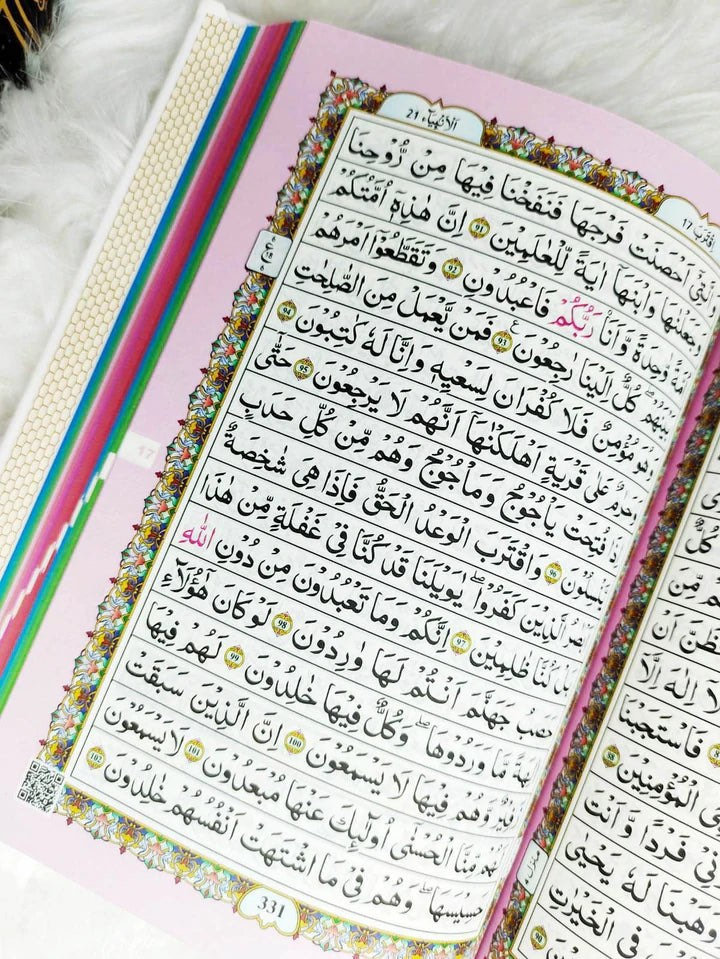 اَلْاَنْبِيَآء 21
اِقْتَرَبَ 17
وَالَّتِيْۤ اَحْصَنَتْ فَرْجَهَا فَنَفَخْنَا فِيْهَا مِنْ رُّوْحِنَا
وَجَعَلْنٰهَا وَابْنَهَاۤ اٰيَةً لِّلْعٰلَمِيْنَ 91 اِنَّ هٰذِهٖۤ اُمَّتُكُمْ
اُمَّةً وَّاحِدَةً وَّاَنَا رَبُّكُمْ فَاعْبُدُوْنِ 92 وَتَقَطَّعُوْۤا اَمْرَهُمْ
بَيْنَهُمْ ؕ كُلٌّ اِلَيْنَا رٰجِعُوْنَ 93 فَمَنْ يَّعْمَلْ مِنَ الصّٰلِحٰتِ
وَهُوَ مُؤْمِنٌ فَلَا كُفْرَانَ لِسَعْيِهٖ وَاِنَّا لَهٗ كٰتِبُوْنَ 94
وَحَرٰمٌ عَلٰى قَرْيَةٍ اَهْلَكْنٰهَاۤ اَنَّهُمْ لَا يَرْجِعُوْنَ 95 حَتّٰۤى
اِذَا فُتِحَتْ يَاْجُوْجُ وَمَاْجُوْجُ وَهُمْ مِّنْ كُلِّ حَدَبٍ
يَّنْسِلُوْنَ 96 وَاقْتَرَبَ الْوَعْدُ الْحَقُّ فَاِذَا هِيَ شَاخِصَةٌ
اَبْصَارُ الَّذِيْنَ كَفَرُوْا ؕ يٰوَيْلَنَا قَدْ كُنَّا فِيْ غَفْلَةٍ مِّنْ هٰذَا
بَلْ كُنَّا ظٰلِمِيْنَ 97 اِنَّكُمْ وَمَا تَعْبُدُوْنَ مِنْ دُوْنِ اللّٰهِ
حَصَبُ جَهَنَّمَ اَنْتُمْ لَهَا وٰرِدُوْنَ 98 لَوْ كَانَ هٰۤؤُلَآءِ
اٰلِهَةً مَّا وَرَدُوْهَا ؕ وَكُلٌّ فِيْهَا خٰلِدُوْنَ 99 لَهُمْ فِيْهَا
زَفِيْرٌ وَّهُمْ فِيْهَا لَا يَسْمَعُوْنَ 100 اِنَّ الَّذِيْنَ سَبَقَتْ
لَهُمْ مِّنَّا الْحُسْنٰۤى اُولٰٓئِكَ عَنْهَا مُبْعَدُوْنَ 101 لَا يَسْمَعُوْنَ
حَسِيْسَهَا ۚ وَهُمْ فِيْ مَا اشْتَهَتْ اَنْفُسُهُمْ خٰلِدُوْنَ 102
331
17
كُلٌّ
مِّنَ
اَنْ
لَاۤ اِلٰهَ اِلَّاۤ
فَاسْتَجَبْنَا
الْمُؤْمِنِيْنَ 88
فَرْدًا وَّاَنْتَ
وَوَهَبْنَا لَهٗ يَحْيٰى
فِي الْخَيْرٰتِ
90